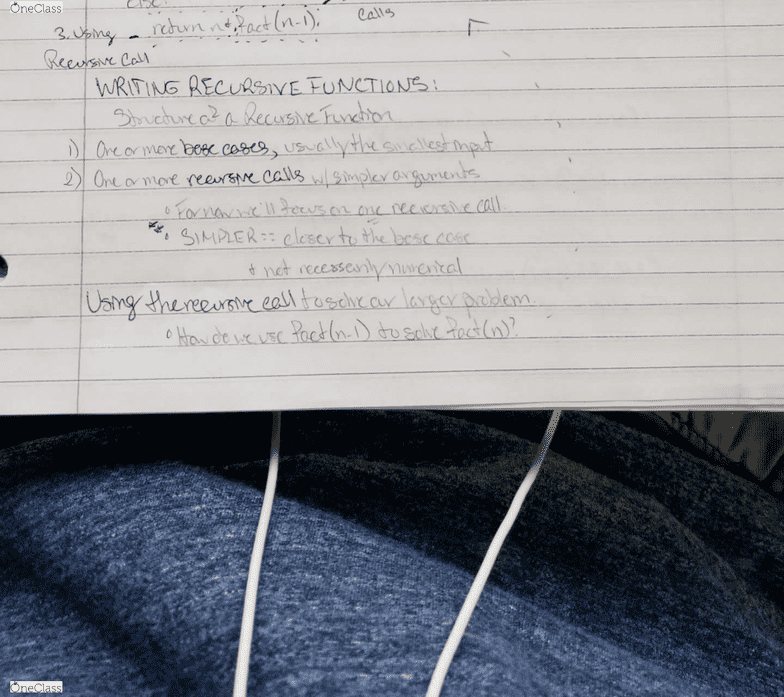 OneClass
else
3. Using - return n * fact(n-1); calls
Recursive Call
WRITING RECURSIVE FUNCTIONS:
Structure of a Recursive Function
1) One or more base cases, usually the smallest input
2) One or more recursive calls w/ simpler arguments
For now we'll focus on one recursive call
** SIMPLER :: closer to the base case
not necessarily numerical
Using the recursive call to solve our larger problem.
How do we use fact(n-1) to solve fact(n)?
OneClass